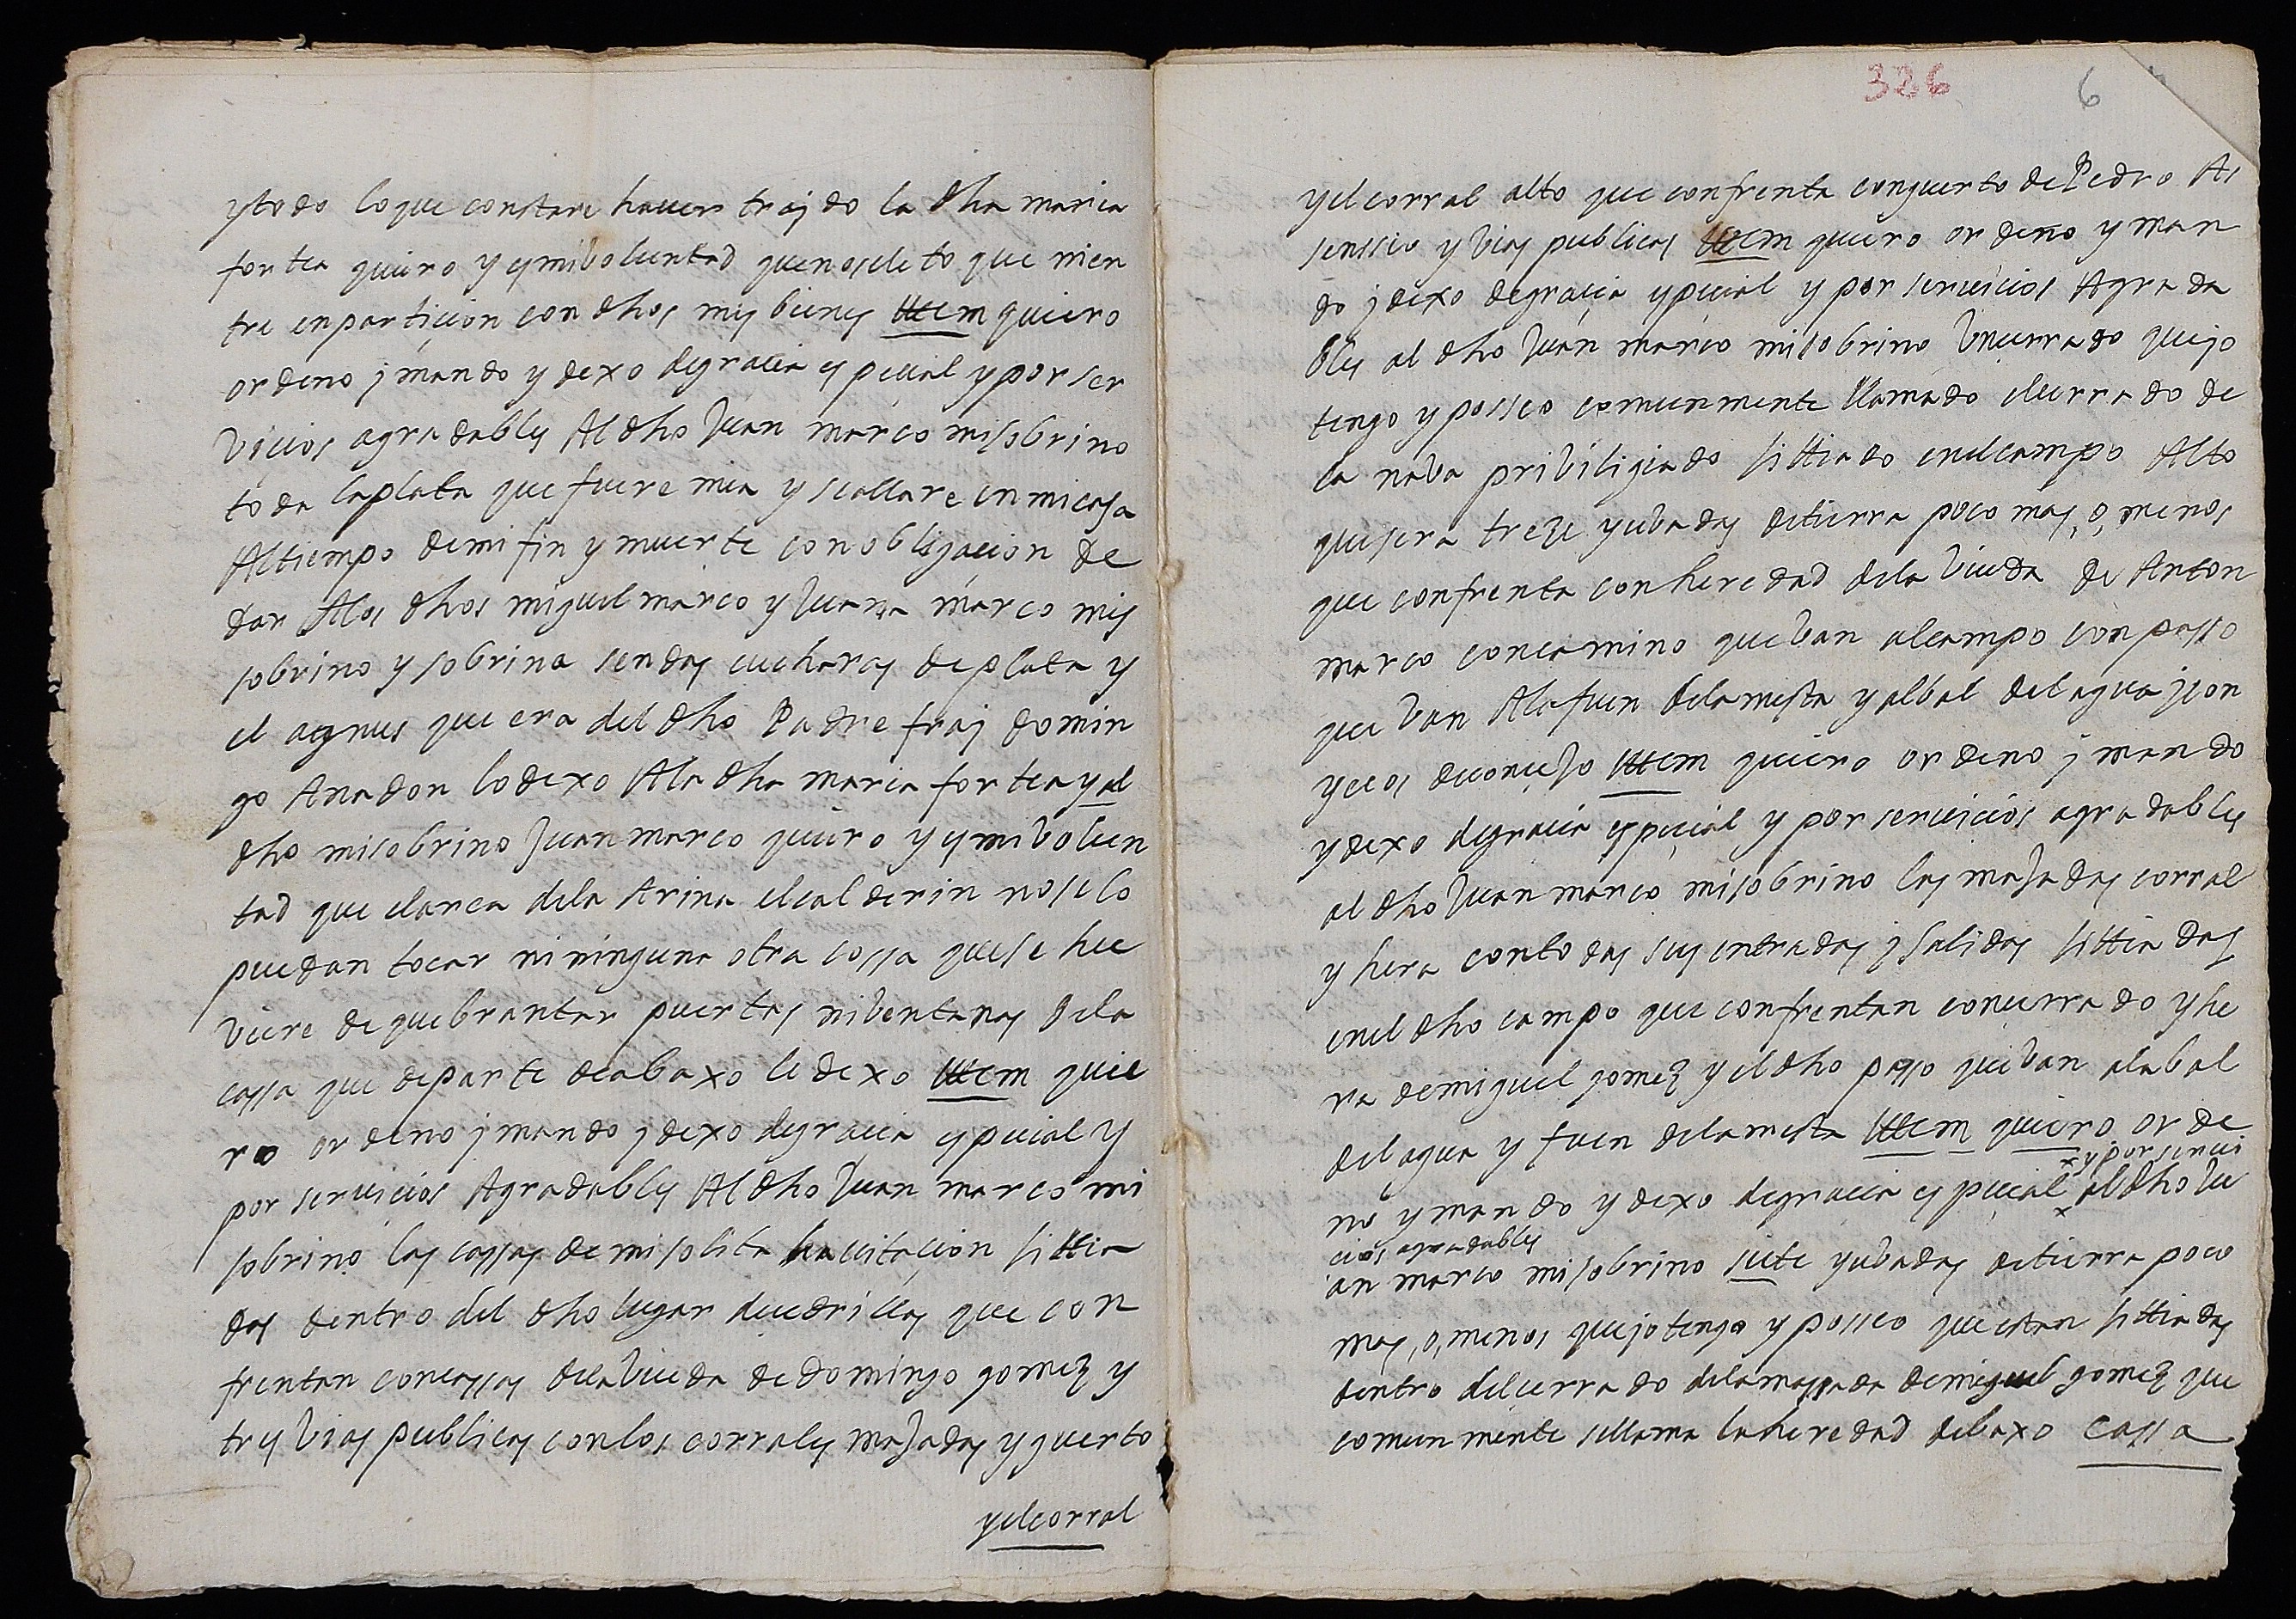 y todo lo que constare hauer traydo la dha maria
fortea quiero y es mi boluntad que no se le toque ni en
tre en particion con dhos mis bienes Ittem quiero
ordeno j mando y dexo de gracia especial y por ser
bicios agradables Al dho Juan marco mi sobrino
toda la plata que fuere mia y se allare en mi casa
Al tiempo de mi fin y muerte con obligacion de
dar A los dhos miguel marco y Juana marco mis
sobrino y sobrina sendas cucharas de plata y
el agnus que era del dho Padre fraj domin
go Anadon lo dexo A la dha maria fortea y al
dho mi sobrino Juan marco quiero y es mi bolun
tad que el arca de la Arina el calderin no se lo
puedan tocar ni ninguna otra cossa que se hu
viere de quebrantar puertas ni bentanas de la
cassa que de parte de abaxo le dexo Ittem quie
ro ordeno j mando j dexo de gracia especial y
por seruicios Agradables Al dho Juan marco mi
sobrino las cassas de mi solita hauitacion sittia
das dentro del dho lugar de cedrillas que con
frentan con cassas de la viuda de domingo gomez y
tres vias publicas con los corrales majadas y guerto
y el corral
326 6
y el corral alto que confrenta con guerto de Pedro As
senssio y vias publicas Ittem quiero ordeno y man
do j dexo de gracia especial y por seruicios Agrada
bles al dho Juan marco mi sobrino Un cerrado que jo
tengo y posseo comunmente llamado el cerrado de
la naba pribiligiado sittiado en el campo Alto
que sera treze yubadas de tierra poco mas, o, menos
que confrenta con heredad de la viuda de Anton
marco con camino que ban al campo con passo
que ban A la fuen de la mesta y al bal del agua j con
yecos de concejo Ittem quiero ordeno j mando
y dexo de gracia especial y por seruicios agradables
al dho Juan marco mi sobrino las majadas corral
y hera con todas sus entradas j salidas sittiadas
en el dho campo que confrentan con cerrado y he
ra de miguel gomez y el dho passo que ban a la bal
del agua y fuen de la mesta Ittem quiero orde
no y mando y dexo de gracia especial x y por serui
cios agradables x al dho Ju
an marco mi sobrino siete yubadas de tierra poco
mas, o, menos que jo tengo y posseo que estan sittiadas
dentro del cerrado de la massada de miguel gomez que
comunmente se llama la heredad debaxo cassa